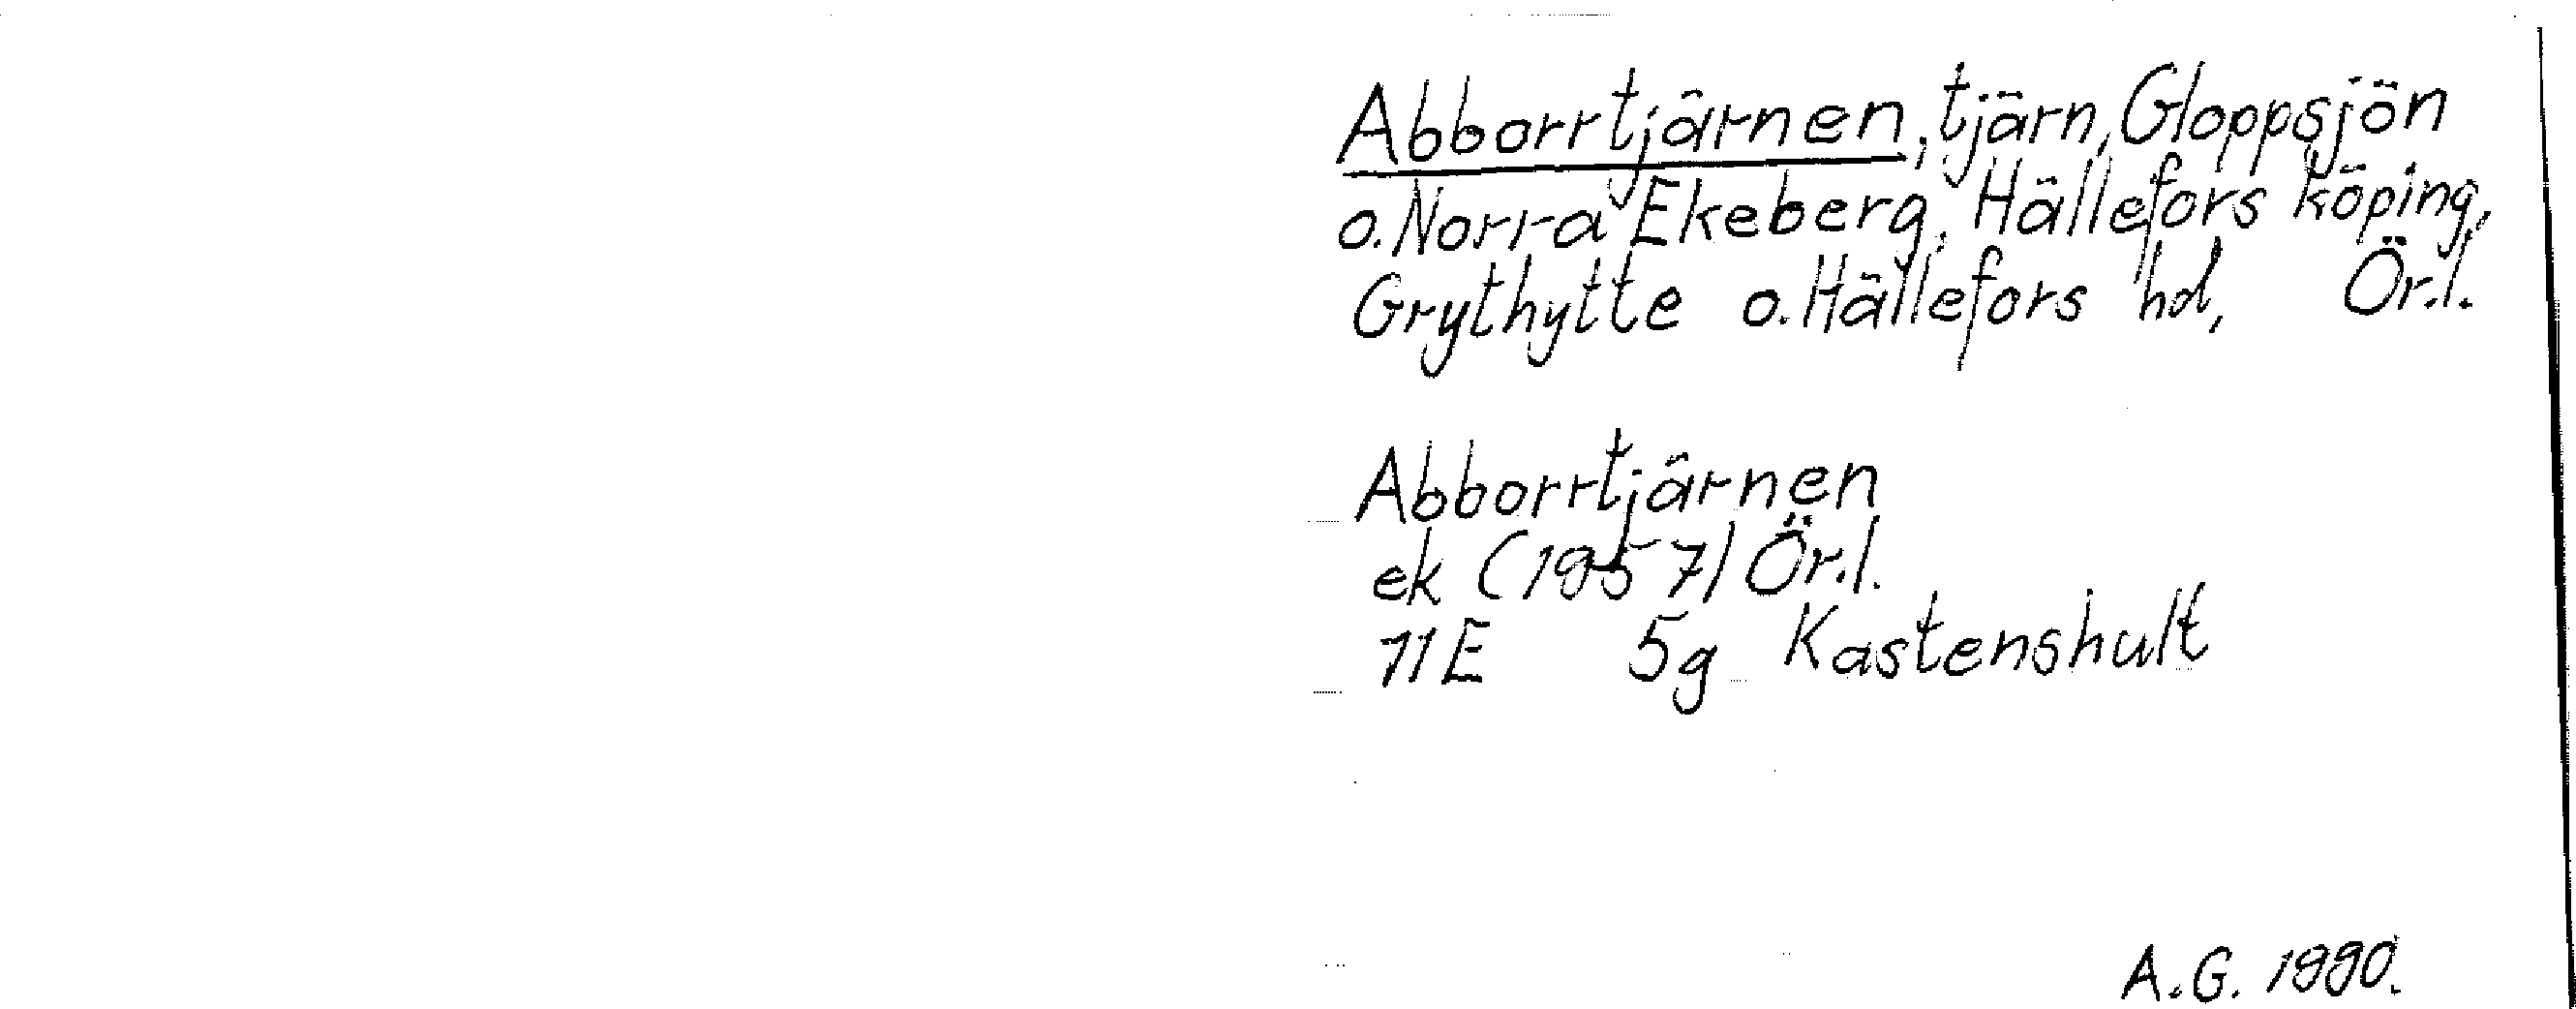 Abborrtjärnen, tjärn, Gloppsjön
o. Norra Ekeberg, Hällefors köping,
Grythytte o. Hällefors hd, Ör.l.
Abborrtjärnen
ek (1957) Ör.l.
11E 5g Kastenshult
A.G. 1990.